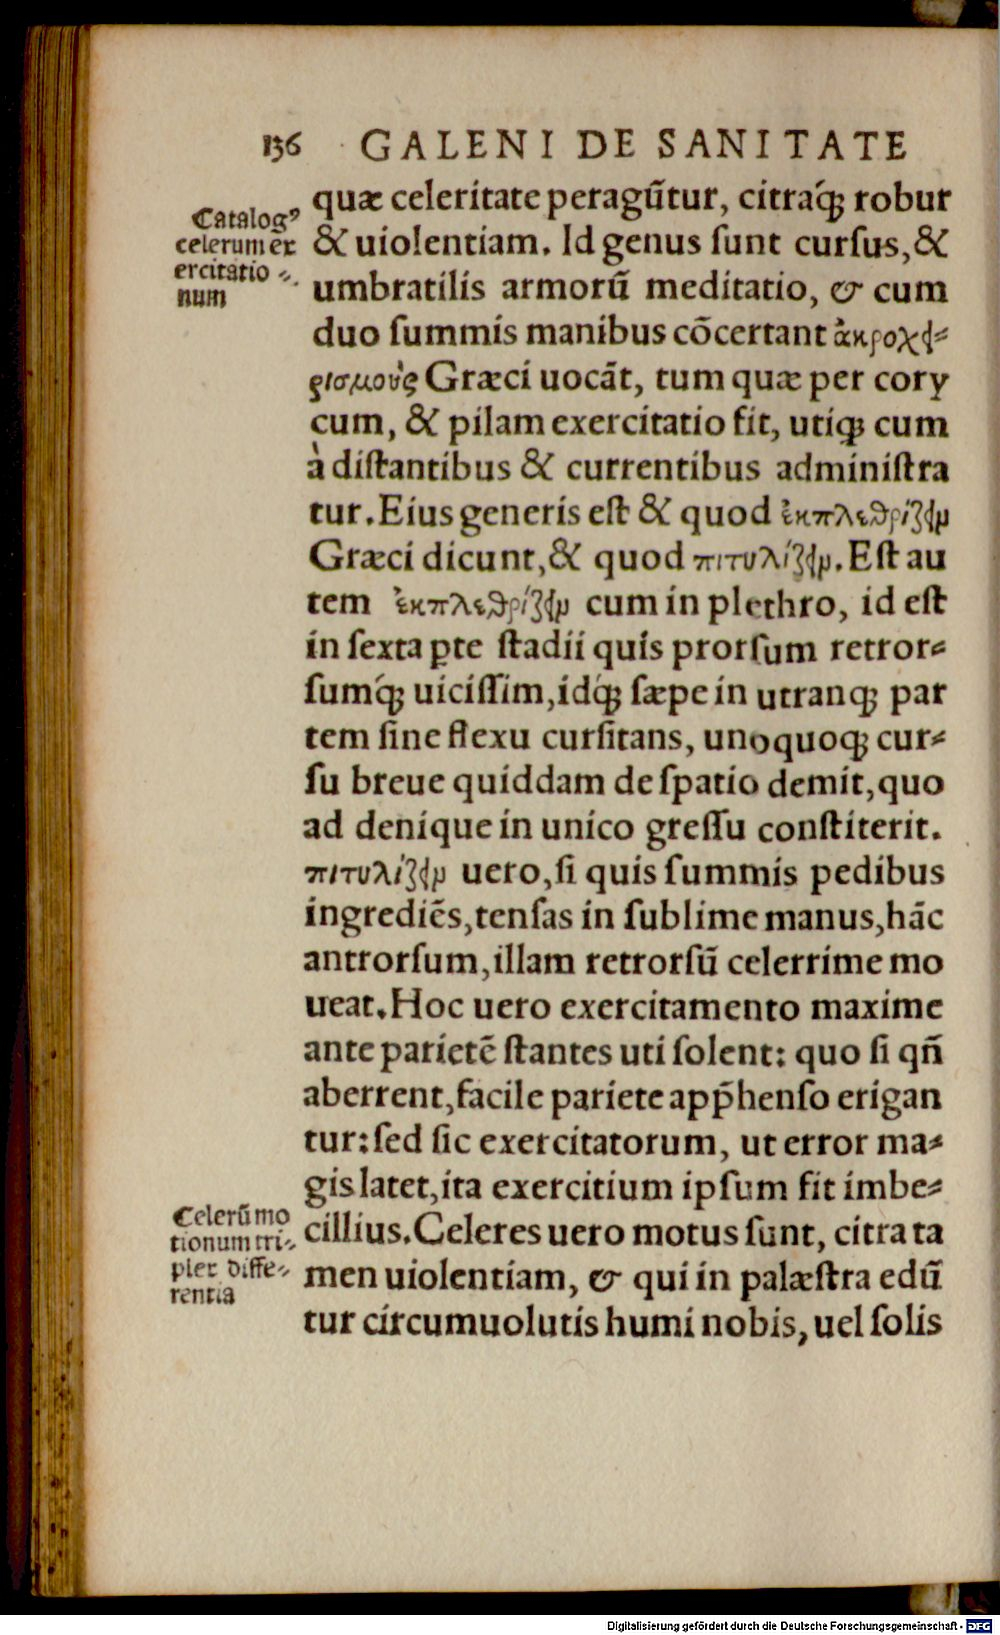 136 GALENI DE SANITATE
Catalogꝰ
celerum ex
ercitatio⸗
num
quæ celeritate peragūtur, citraq́ꝫ robur
& uiolentiam. Id genus ſunt curſus, &
umbratilis armorū meditatio, & cum
duo ſummis manibus cōcertant ἀκροχει⸗
ρισμοὺς Græci uocāt, tum quæ per cory
cum, & pilam exercitatio fit, utiqꝫ cum
à diſtantibus & currentibus adminiſtra
tur. Eius generis eſt & quod ἐκπλεθρίζειν
Græci dicunt, & quod πιτυλίζειν. Eſt au
tem ἐκπλεθρίζειν cum in plethro, id eſt
in ſexta ꝑte ſtadii quis prorſum retror⸗
ſumq́ꝫ uiciſſim, idq́ꝫ ſæpe in utranqꝫ par
tem ſine flexu curſitans, unoquoqꝫ cur⸗
ſu breue quiddam de ſpatio demit, quo
ad denique in unico greſſu conſtiterit.
πιτυλίζειν uero, ſi quis ſummis pedibus
ingrediēs, tenſas in ſublime manus, hāc
antrorſum, illam retrorſū celerrime mo
ueat. Hoc uero exercitamento maxime
ante parietē ſtantes uti ſolent: quo ſi qn̄
aberrent, facile pariete app̄henſo erigan
tur: ſed ſic exercitatorum, ut error ma⸗
gis latet, ita exercitium ipſum fit imbe⸗
cillius. Celeres uero motus ſunt, citra ta
men uiolentiam, & qui in palæſtra edū
tur circumuolutis humi nobis, uel ſolis
Celerū mo
tionum tri⸗
plex diffe⸗
rentia
Digitalisierung gefördert durch die Deutsche Forschungsgemeinschaft - DFG